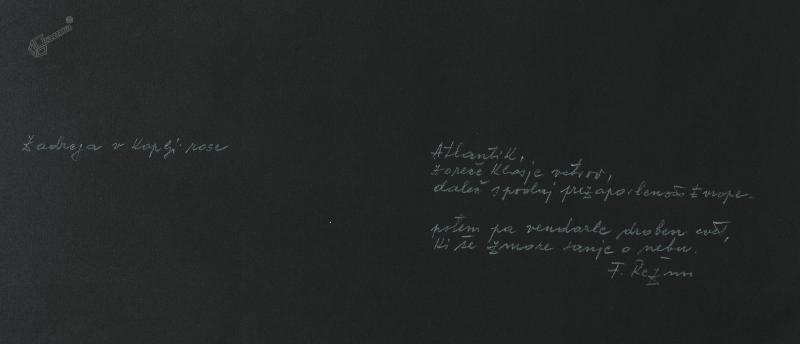 Zadrega v kaplji rose
Atlantik,
zoreče klasje vetrov,
daleč spodaj Evrope.
potem pa vendarle droben cvet,
ki še zmore sanje o nebu.
F. Režun